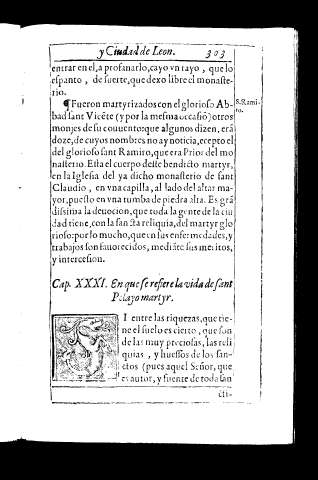 y Ciudad de Leon. 303
entrar en el, a profanarlo, cayo vn rayo, que lo
espanto, de suerte, que dexo libre el monaste-
rio.
¶ Fueron martyrizados con el glorioso Ab-
bad sant Vicẽte (y por la mesma occasiõ) otros
monjes de su conuento: que algunos dizen, erã
doze, de cuyos nombres no ay noticia, ecepto el
del glorioso sant Ramiro, que era Prior del mo
nasterio. Esta el cuerpo deste bendicto martyr,
en la Iglesia del ya dicho monasterio de sant
Claudio, en vna capilla, al lado del altar ma-
yor, puesto en vna tumba de piedra alta. Es grã
dissima la deuocion, que toda la gente de la ciu
dad tiene, con la sancta reliquia, del martyr glo
rioso: por lo mucho, que en sus enfermedades, y
trabajos son fauorecidos, mediãte sus meritos,
y intercesion.
S. Rami-
ro.
Cap. XXXI. En que se refiere la vida de sant
Pelayo martyr.
SI entre las riquezas, que tie-
ne el suelo es cierto, que son
de las muy preciosas, las reli
quias, y huessos de los san-
ctos (pues aquel Señor, que
es autor, y fuente de toda san
cti-